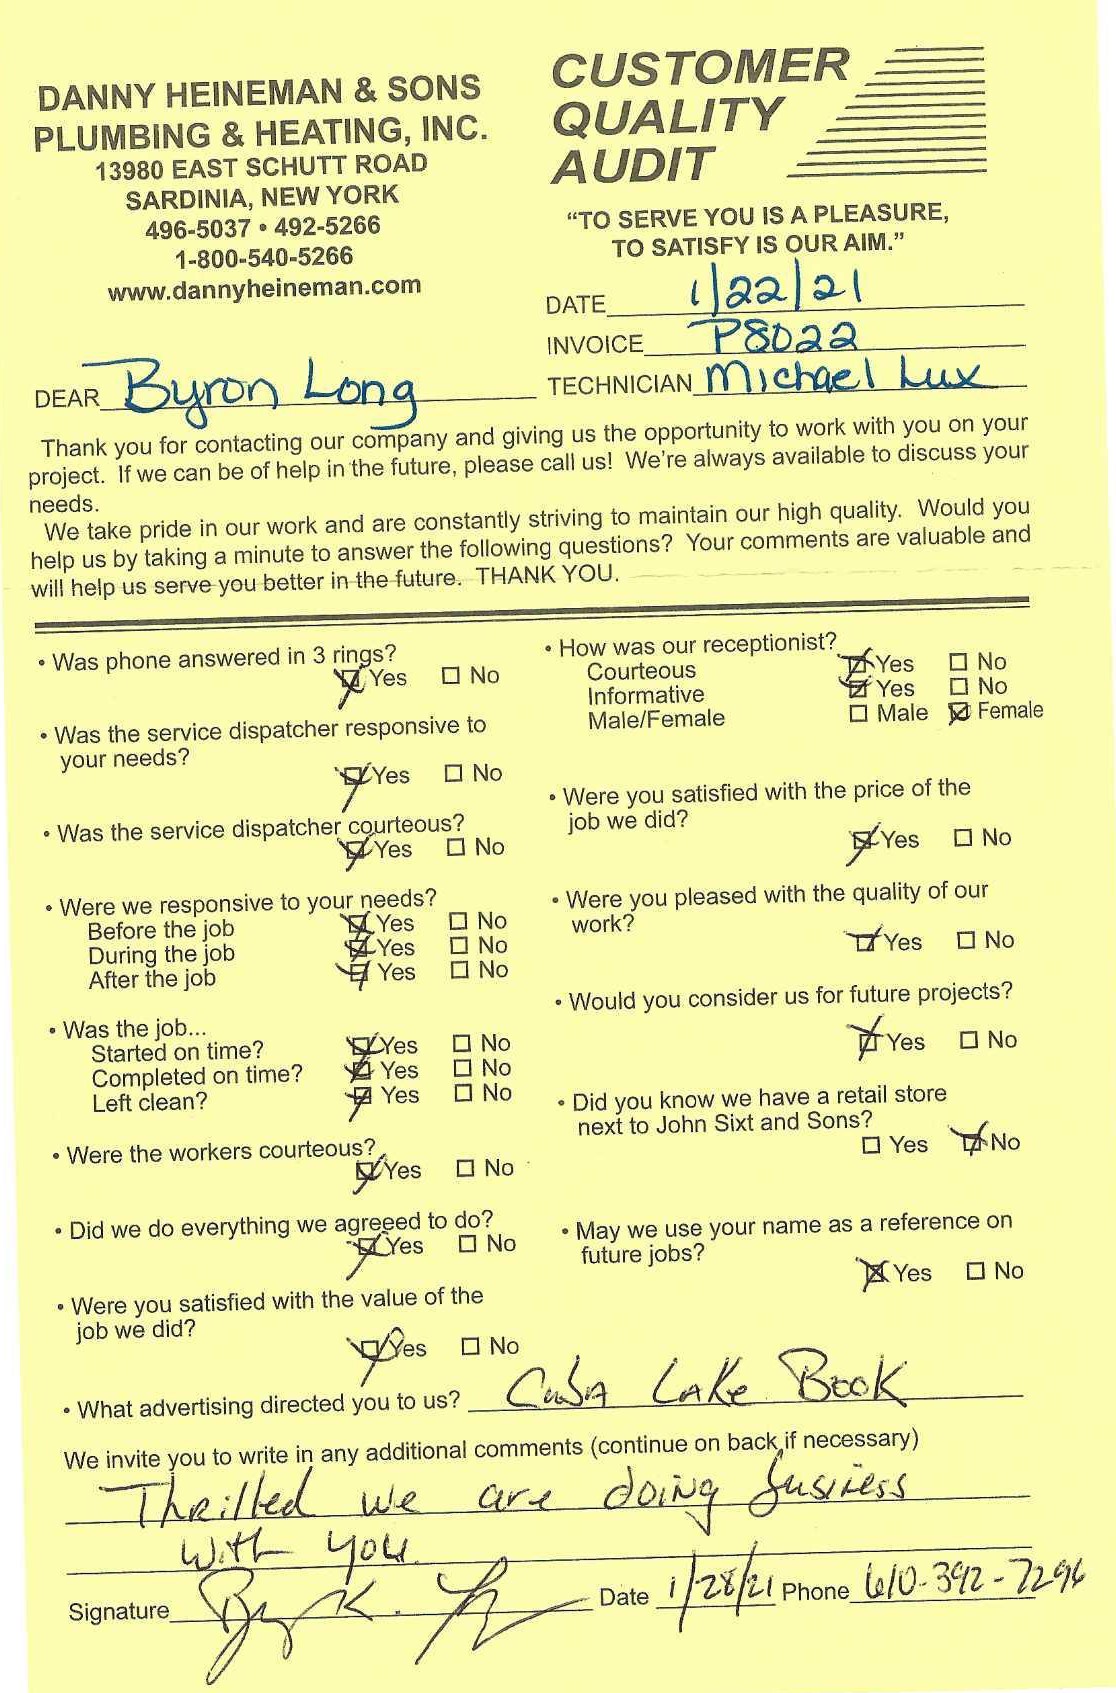 DANNY HEINEMAN & SONS
PLUMBING & HEATING, INC.
13980 EAST SCHUTT ROAD
SARDINIA, NEW YORK
496-5037 • 492-5266
1-800-540-5266
www.dannyheineman.com
CUSTOMER
QUALITY
AUDIT
"TO SERVE YOU IS A PLEASURE,
TO SATISFY IS OUR AIM."
DATE 1/22/21
INVOICE P8022
TECHNICIAN Michael Lux
DEAR Byron Long
Thank you for contacting our company and giving us the opportunity to work with you on your
project. If we can be of help in the future, please call us! We're always available to discuss your
needs.
We take pride in our work and are constantly striving to maintain our high quality. Would you
help us by taking a minute to answer the following questions? Your comments are valuable and
will help us serve you better in the future. THANK YOU.
• Was phone answered in 3 rings?
Yes No
• Was the service dispatcher responsive to
your needs?
Yes No
• Was the service dispatcher courteous?
Yes No
• Were we responsive to your needs?
Before the job Yes No
During the job Yes No
After the job Yes No
• Was the job...
Started on time? Yes No
Completed on time? Yes No
Left clean? Yes No
• Were the workers courteous?
Yes No
• Did we do everything we agreeed to do?
Yes No
• Were you satisfied with the value of the
job we did?
Yes No
• How was our receptionist?
Courteous Yes No
Informative Yes No
Male/Female Male Female
• Were you satisfied with the price of the
job we did?
Yes No
• Were you pleased with the quality of our
work?
Yes No
• Would you consider us for future projects?
Yes No
• Did you know we have a retail store
next to John Sixt and Sons?
Yes No
• May we use your name as a reference on
future jobs?
Yes No
• What advertising directed you to us? Cuba Lake Book
We invite you to write in any additional comments (continue on back if necessary)
Thrilled we are doing business
with you.
Signature Date 1/28/21 Phone 610-392-7296